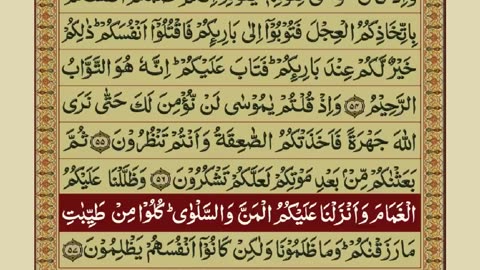 بِاتِّخَاذِكُمُ الْعِجْلَ فَتُوْبُوْٓا اِلٰى بَارِىِٕكُمْ فَاقْتُلُوْٓا اَنْفُسَكُمْ ؕ ذٰلِكُمْ
خَيْرٌ لَّكُمْ عِنْدَ بَارِىِٕكُمْ ؕ فَتَابَ عَلَيْكُمْ ؕ اِنَّهٗ هُوَ التَّوَّابُ
الرَّحِيْمُ ﴿۵۴﴾ وَاِذْ قُلْتُمْ يٰمُوْسٰى لَنْ نُّؤْمِنَ لَكَ حَتّٰى نَرَى
اللّٰهَ جَهْرَةً فَاَخَذَتْكُمُ الصّٰعِقَةُ وَاَنْتُمْ تَنْظُرُوْنَ ﴿۵۵﴾ ثُمَّ
بَعَثْنٰكُمْ مِّنْۢ بَعْدِ مَوْتِكُمْ لَعَلَّكُمْ تَشْكُرُوْنَ ﴿۵۶﴾ وَظَلَّلْنَا عَلَيْكُمُ
الْغَمَامَ وَاَنْزَلْنَا عَلَيْكُمُ الْمَنَّ وَالسَّلْوٰى ؕ كُلُوْا مِنْ طَيِّبٰتِ
مَا رَزَقْنٰكُمْ ؕ وَمَا ظَلَمُوْنَا وَلٰكِنْ كَانُوْٓا اَنْفُسَهُمْ يَظْلِمُوْنَ ﴿۵۷﴾